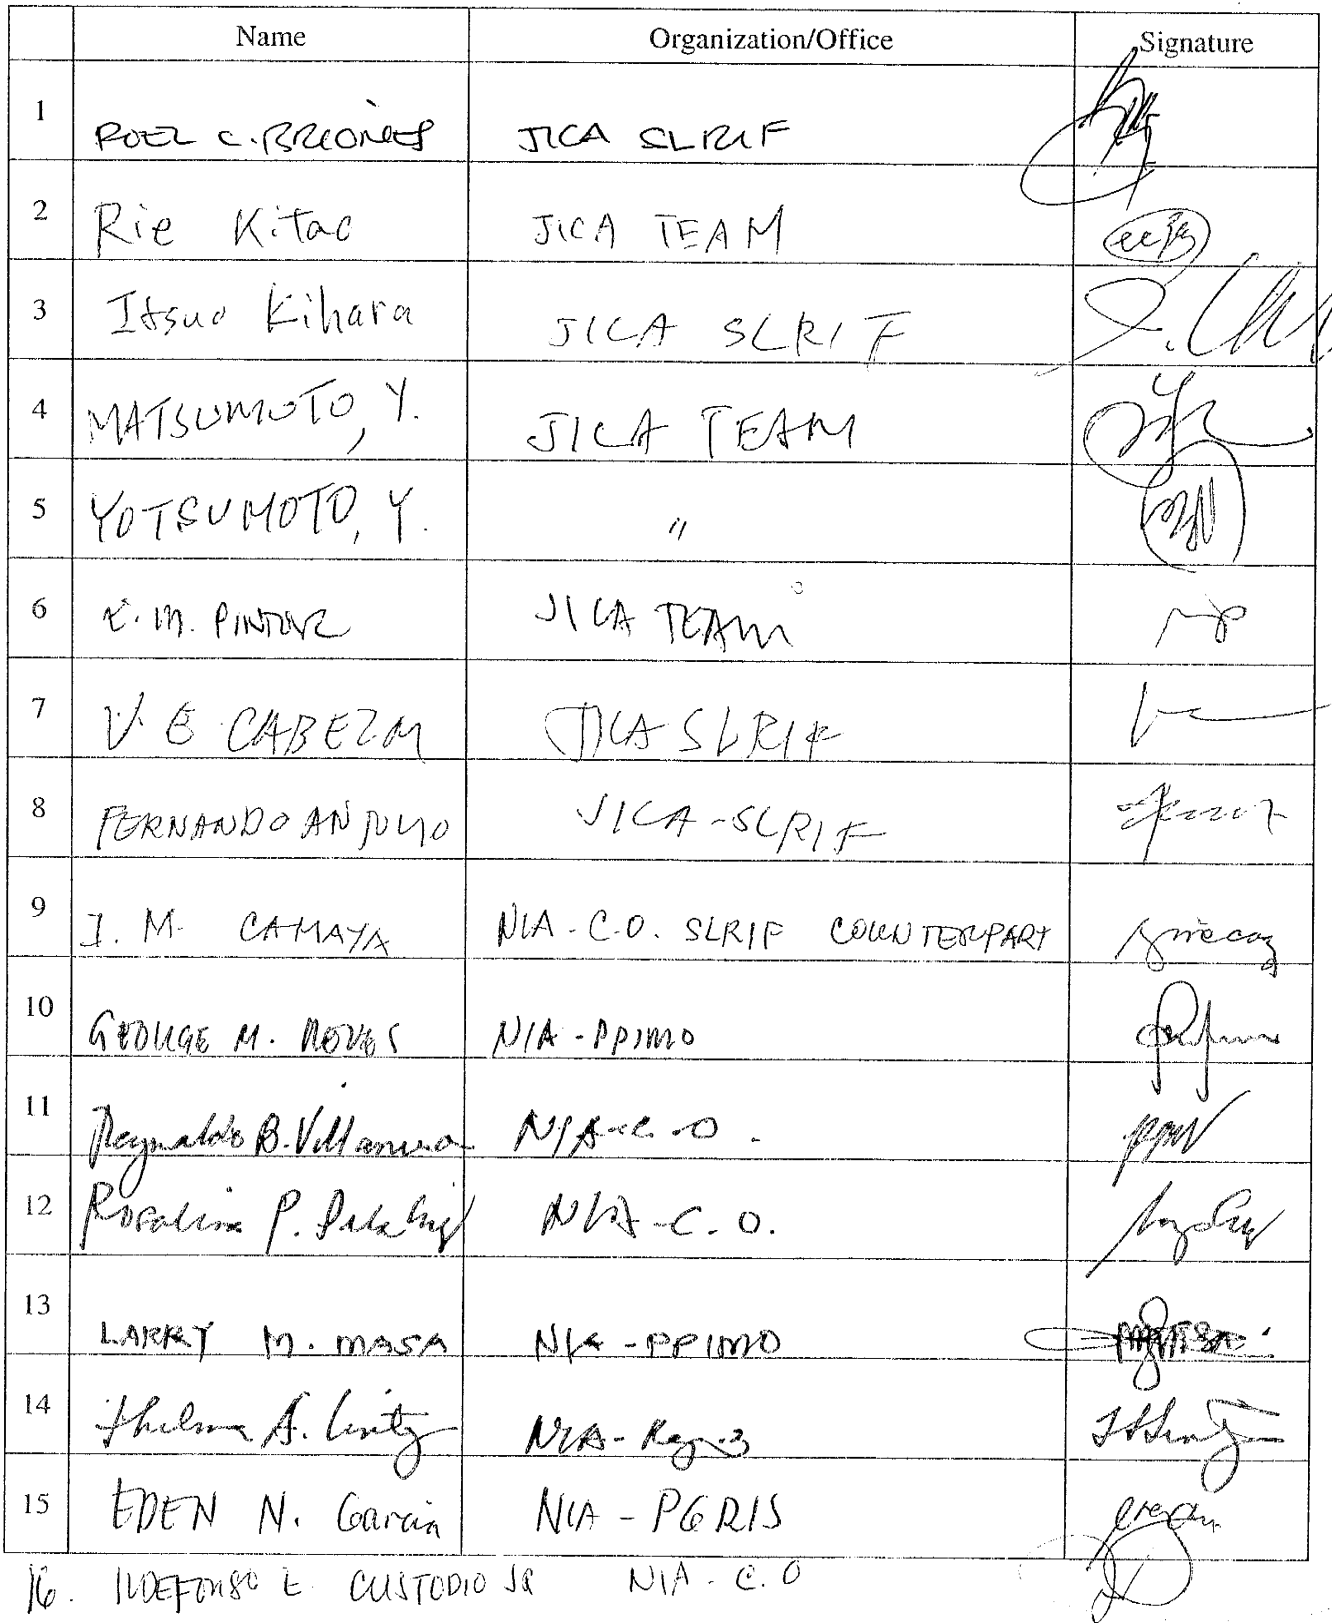 Name Organization/Office Signature
1 ROEL C. BRIONES JICA SLRIF
2 Rie Kitao JICA TEAM
3 Itsuo Kihara JICA SLRIF
4 MATSUMOTO, Y. JICA TEAM
5 YOTSUMOTO, Y. "
6 E. M. PINTOR JICA TEAM
7 V E CABEZON JICA SLRIF
8 FERNANDO JICA-SLRIF
9 I. M. CAMAYA NIA-C.O. SLRIF COUNTERPART
10 GEORGE M. NIA-PPIMO
11 Reynaldo B. Villanueva NIA-C.O.
12 Rosalina P. NIA-C.O.
13 LARRY M. MASA NIA-PPIMO
14 Thelma A. NIA-Reg-3
15 EDEN N. Garcia NIA-PGRIS
16. ILDEFONSO E. CUSTODIO JR NIA-C.O